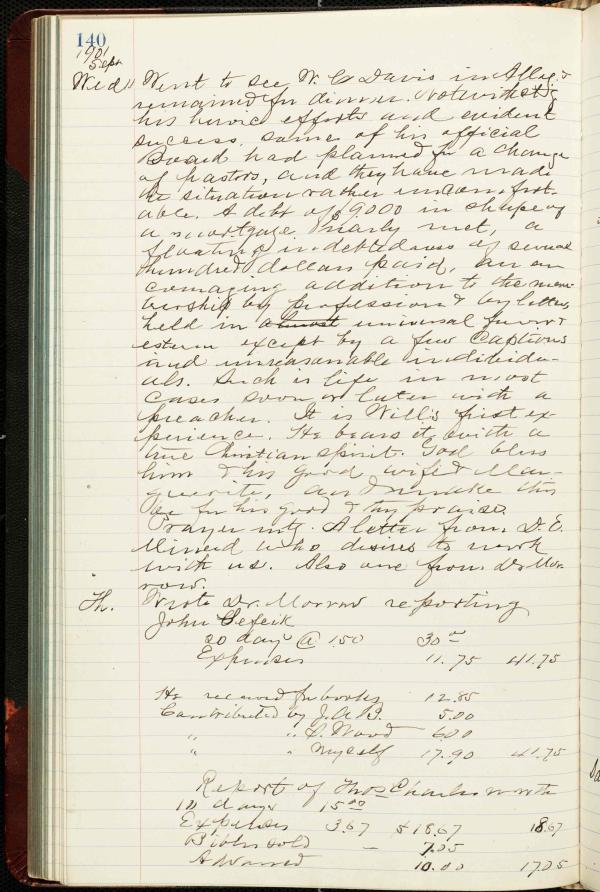 140
1901
Sept
Wed 11 Went to see W. C. Davis in Alleg. &
remained for dinner. Notwithstg
his heroic efforts and evident
success, some of his official
Board had planned for a change
of pastors, and they have made
the situation rather uncomfort-
able. A debt of $9000 in shape of
a mortgage nearly met, a
floating indebtedness of several
hundred dollars paid, an en
couraging addition to the mem
bership by profession & by letter,
held in almost universal favor &
esteem except by a few Captious
and unreasonable individu-
als. Such is life in most
cases soon or later with a
preacher. It is Will's first ex-
perience. He bears it with a
true Christian spirit. God bless
him & his good wife & Mar-
guerite, and make this
be for his good & thy praise.
Prayer mtg. A letter from D. E.
Minerd who desires to work
with us. Also one from Dr Mor-
row.
Th. Wrote Dr. Morrow reporting
John Sefcik
20 days @ 1.50 30 —
Expenses 11.75 41.75
He received for books 12.85
Contributed by J.A.B. 5.00
" " S. Ward 6.00
" " Myself 17.90 41.75
Report of Thos Charlesworth
10 days 15.00
Expenses 3.67 $18.67 18.67
Bibles sold — 7.05
Advanced 10.00 17.05